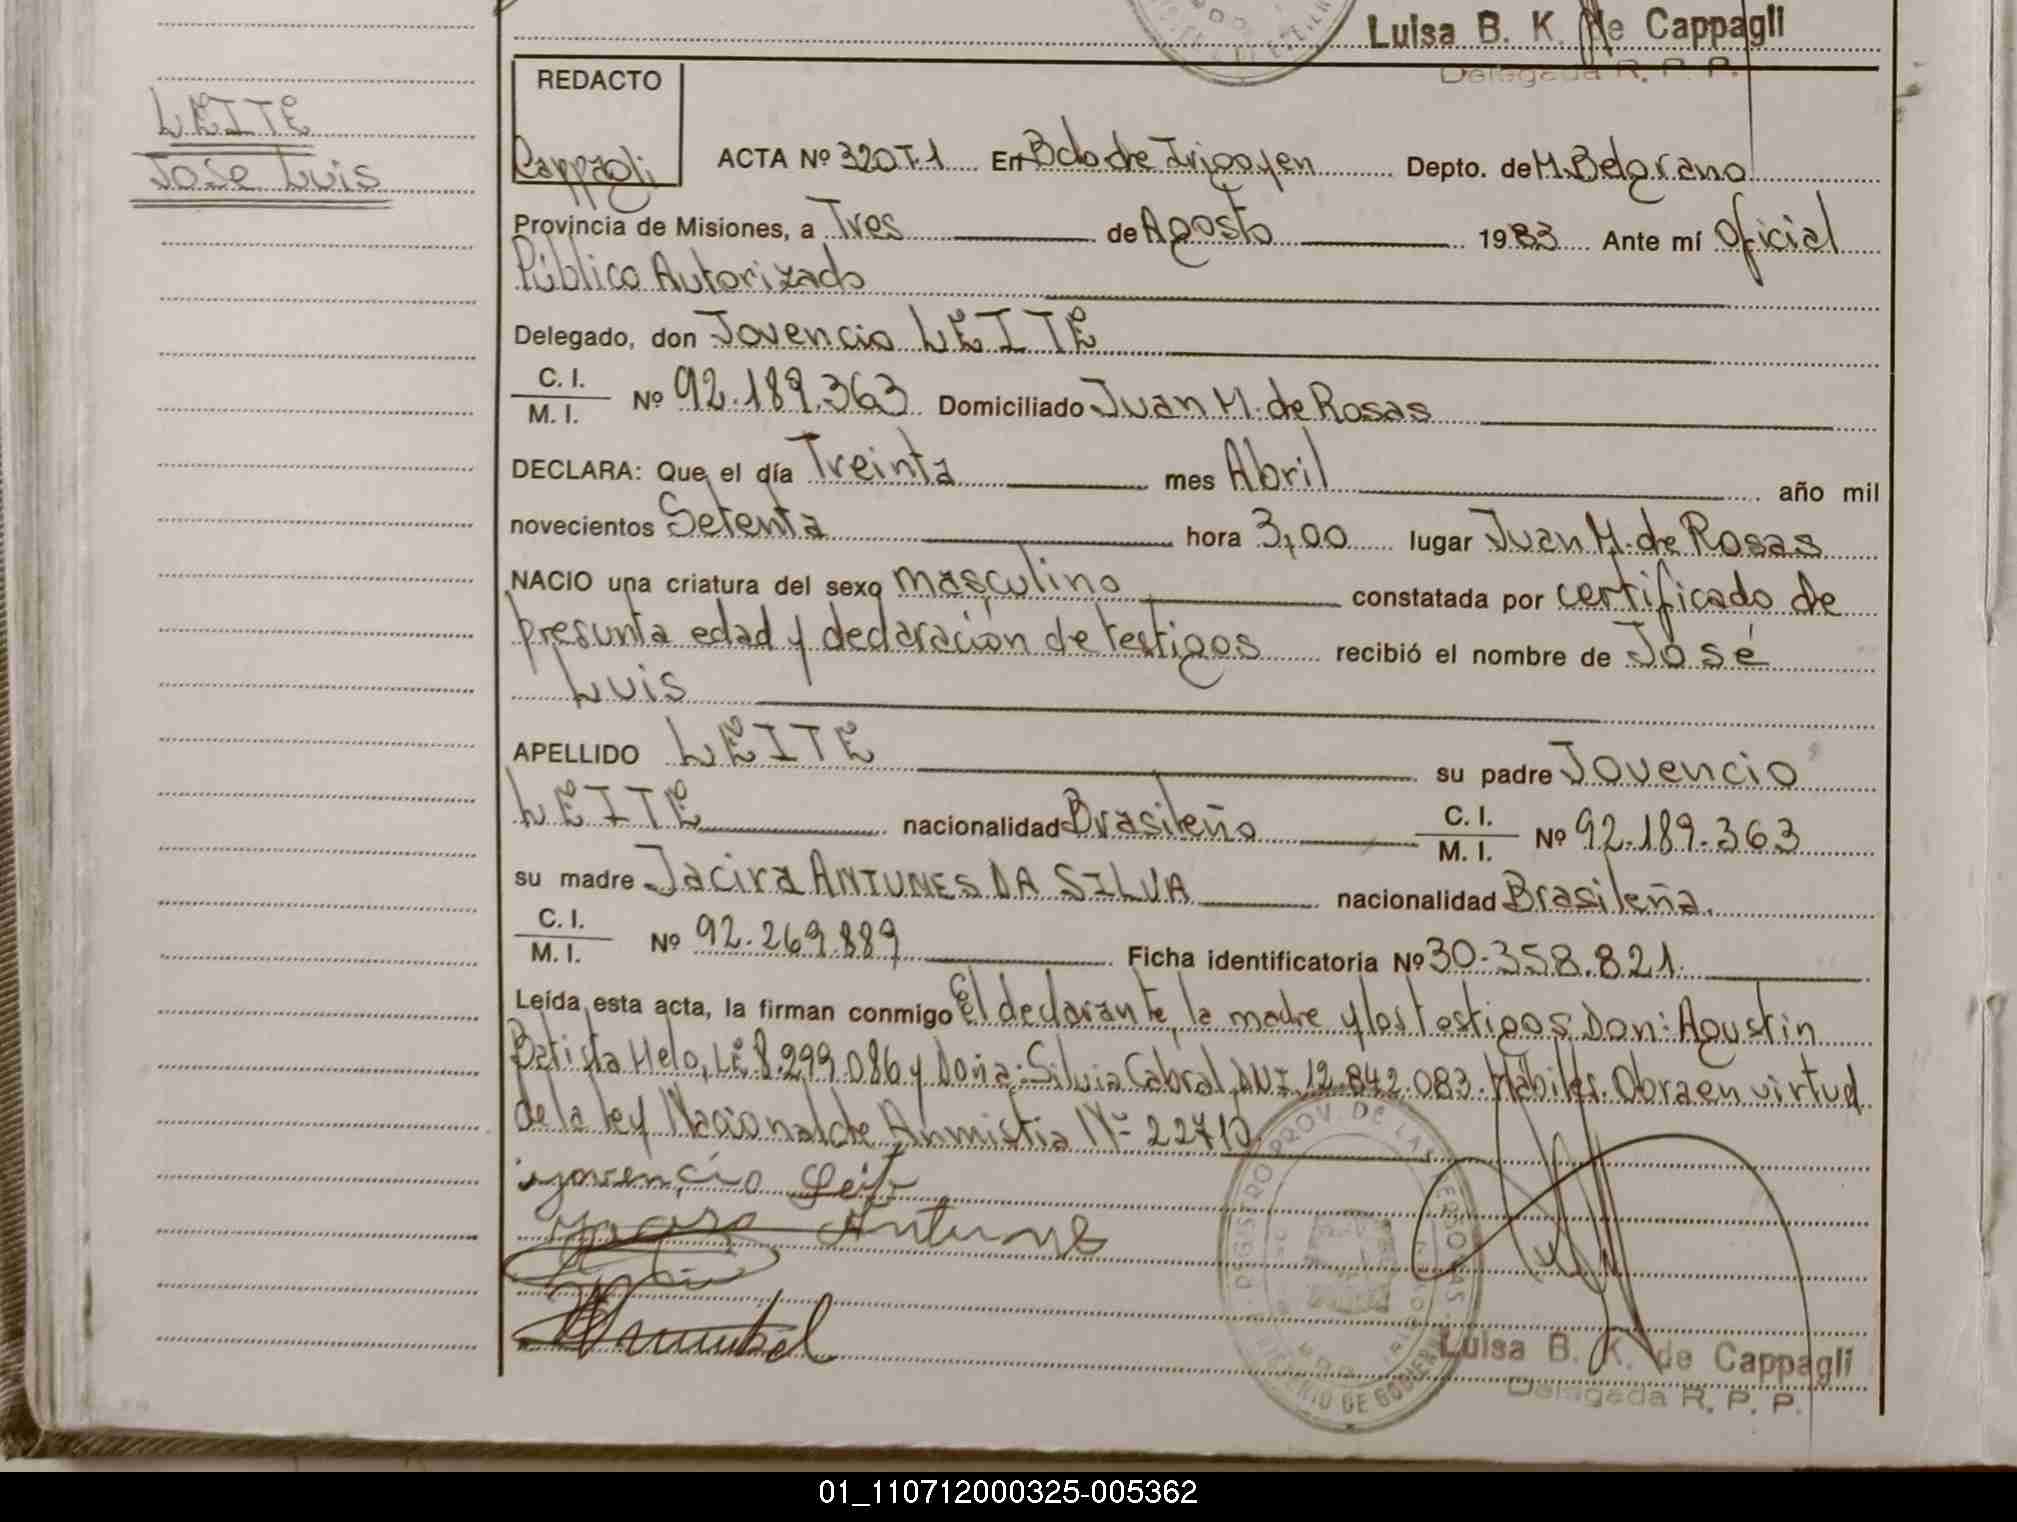 Luisa B. K. de Cappagli
Delegada R. P. P.
LEITE
José Luis
REDACTO
Cappagli
ACTA Nº 320 T.1 En Bdo de Irigoyen Depto. de M. Belgrano
Provincia de Misiones, a Tres de Agosto 1983 Ante mí Oficial
Público Autorizado
Delegado, don Jovencio LEITE
C. I.
M. I. Nº 92.189.363 Domiciliado Juan M. de Rosas
DECLARA: Que el día Treinta mes Abril año mil
novecientos Setenta hora 3,00 lugar Juan M. de Rosas
NACIO una criatura del sexo masculino constatada por certificado de
presunta edad y declaración de testigos recibió el nombre de José
Luis
APELLIDO LEITE su padre Jovencio
LEITE nacionalidad Brasileño C. I.
M. I. Nº 92.189.363
su madre Jacira ANTUNES DA SILVA nacionalidad Brasileña.
C. I.
M. I. Nº 92.269.889 Ficha identificatoria Nº 30.358.821.
Leída esta acta, la firman conmigo El declarante, la madre y los testigos Don: Agustin
Batista Melo, LE 8.299.086 y Doña: Silvia Cabral DNI 12.842.083. Hábiles. Obra en virtud
de la ley Nacional de Anmistia Nº 22710.
Jovencio Leite
Antunes
REGISTRO PROV. DE LAS PERSONAS
MINISTERIO DE GOBIERNO
Luisa B. K. de Cappagli
Delegada R. P. P.
01_110712000325-005362